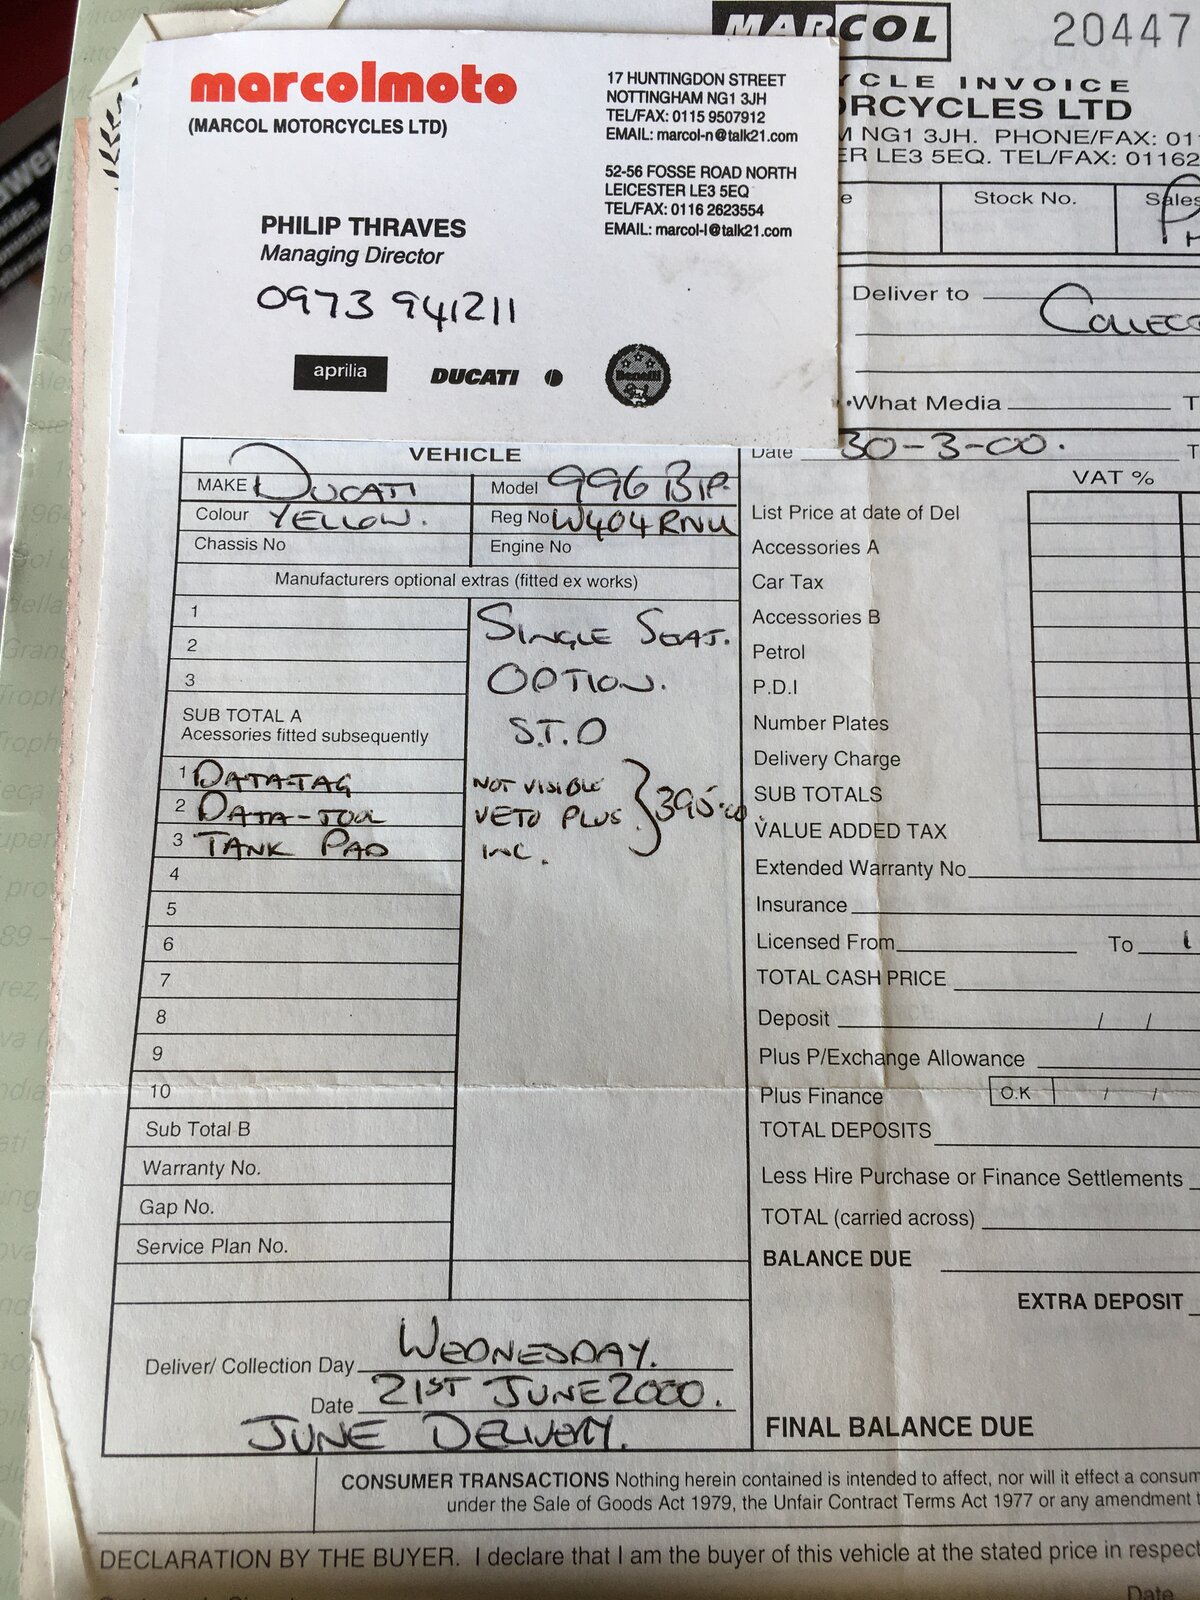 MARCOL
20447
marcolmoto
(MARCOL MOTORCYCLES LTD)
17 HUNTINGDON STREET
NOTTINGHAM NG1 3JH
TEL/FAX: 0115 9507912
EMAIL: marcol-n@talk21.com
52-56 FOSSE ROAD NORTH
LEICESTER LE3 5EQ
TEL/FAX: 0116 2623554
EMAIL: marcol-l@talk21.com
PHILIP THRAVES
Managing Director
0973 941211
aprilia
DUCATI
Benelli
YCLE INVOICE
ORCYCLES LTD
M NG1 3JH. PHONE/FAX: 011
ER LE3 5EQ. TEL/FAX: 01162
e
Stock No.
Sales
Deliver to COLLEC
What Media T
Date 30-3-00. T
VEHICLE
MAKE DUCATI Model 996 BIP.
Colour YELLOW. Reg No W404 RNU
Chassis No Engine No
Manufacturers optional extras (fitted ex works)
1 SINGLE SEAT.
2
3 OPTION.
SUB TOTAL A S.T.O
Acessories fitted subsequently
1 DATA-TAG NOT VISIBLE
2 DATA-TOOL VETO PLUS. } 395.00
3 TANK PAD INC.
4
5
6
7
8
9
10
Sub Total B
Warranty No.
Gap No.
Service Plan No.
Deliver/ Collection Day WEDNESDAY.
Date 21ST JUNE 2000.
JUNE DELIVERY.
VAT %
List Price at date of Del
Accessories A
Car Tax
Accessories B
Petrol
P.D.I
Number Plates
Delivery Charge
SUB TOTALS
VALUE ADDED TAX
Extended Warranty No
Insurance
Licensed From To 1
TOTAL CASH PRICE
Deposit / /
Plus P/Exchange Allowance
Plus Finance O.K / /
TOTAL DEPOSITS
Less Hire Purchase or Finance Settlements
TOTAL (carried across)
BALANCE DUE
EXTRA DEPOSIT
FINAL BALANCE DUE
CONSUMER TRANSACTIONS Nothing herein contained is intended to affect, nor will it effect a consum
under the Sale of Goods Act 1979, the Unfair Contract Terms Act 1977 or any amendment t
DECLARATION BY THE BUYER. I declare that I am the buyer of this vehicle at the stated price in respect
Date